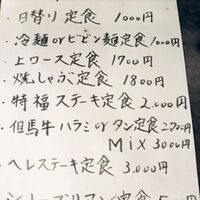 日替り定食 1000円
・冷麺orビビン麺定食1000円
・上ロース定食 1700円
・焼しゃぶ定食 1800円
・特福ステーキ定食 2.000円
・但馬牛ハラミorタン定食2700円
MIX 3000円
・ヘレステーキ定食 3.000円